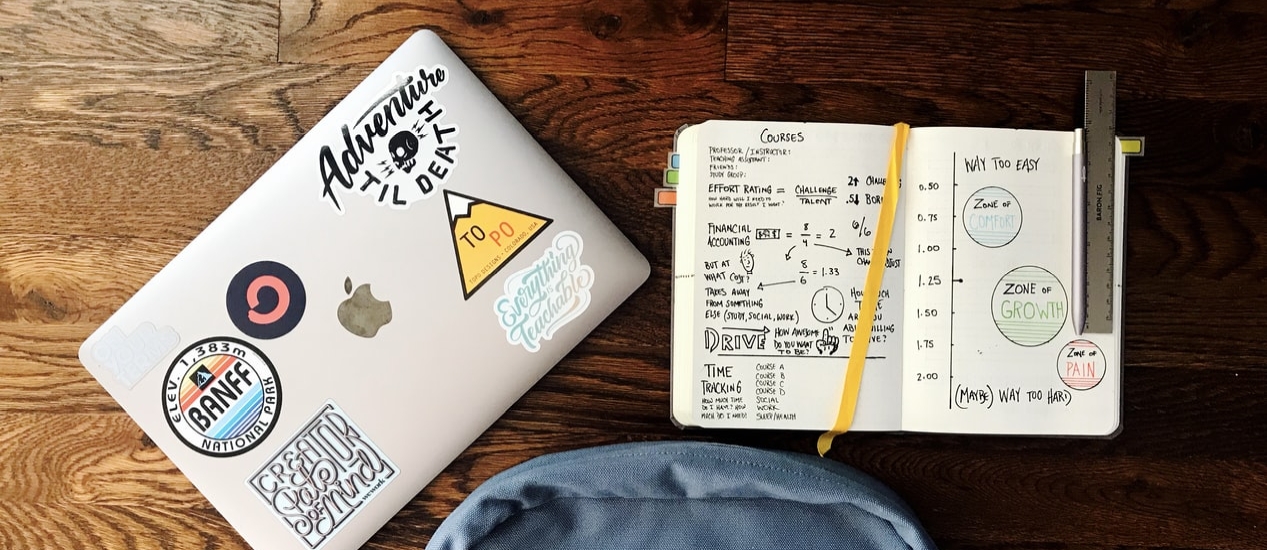 Adventure
TIL DEATH
TO PO
TOPO DESIGNS - COLORADO, USA
Everything
is
Teachable
ELEV. 1,383m
BANFF
NATIONAL PARK
CREATOR
State
of Mind
wework
COURSES
PROFESSOR / INSTRUCTOR:
TEACHING ASSISTANT:
FRIENDS:
STUDY GROUP:
EFFORT RATING = CHALLENGE
TALENT
HOW HARD WILL I NEED TO
WORK FOR THE RESULT I WANT?
2↑
.5↓
FINANCIAL
ACCOUNTING
= 8/4 = 2
6/6
BUT AT
WHAT COST?
8/6 = 1.33
THIS
TAKES AWAY
FROM SOMETHING
ELSE (STUDY, SOCIAL, WORK)
HOW MUCH
TIME
ARE YOU
WILLING
TO GIVE?
DRIVE
HOW AWESOME
DO YOU WANT
TO BE?
TIME
TRACKING
HOW MUCH TIME
DO I HAVE? HOW
MUCH DO I NEED?
COURSE A
COURSE B
COURSE C
COURSE D
SOCIAL
WORK
SLEEP/HEALTH
WAY TOO EASY
0.50
ZONE OF
COMFORT
0.75
1.00
1.25
ZONE OF
GROWTH
1.50
1.75
ZONE OF
PAIN
2.00
(MAYBE) WAY TOO HARD
BARON FIG